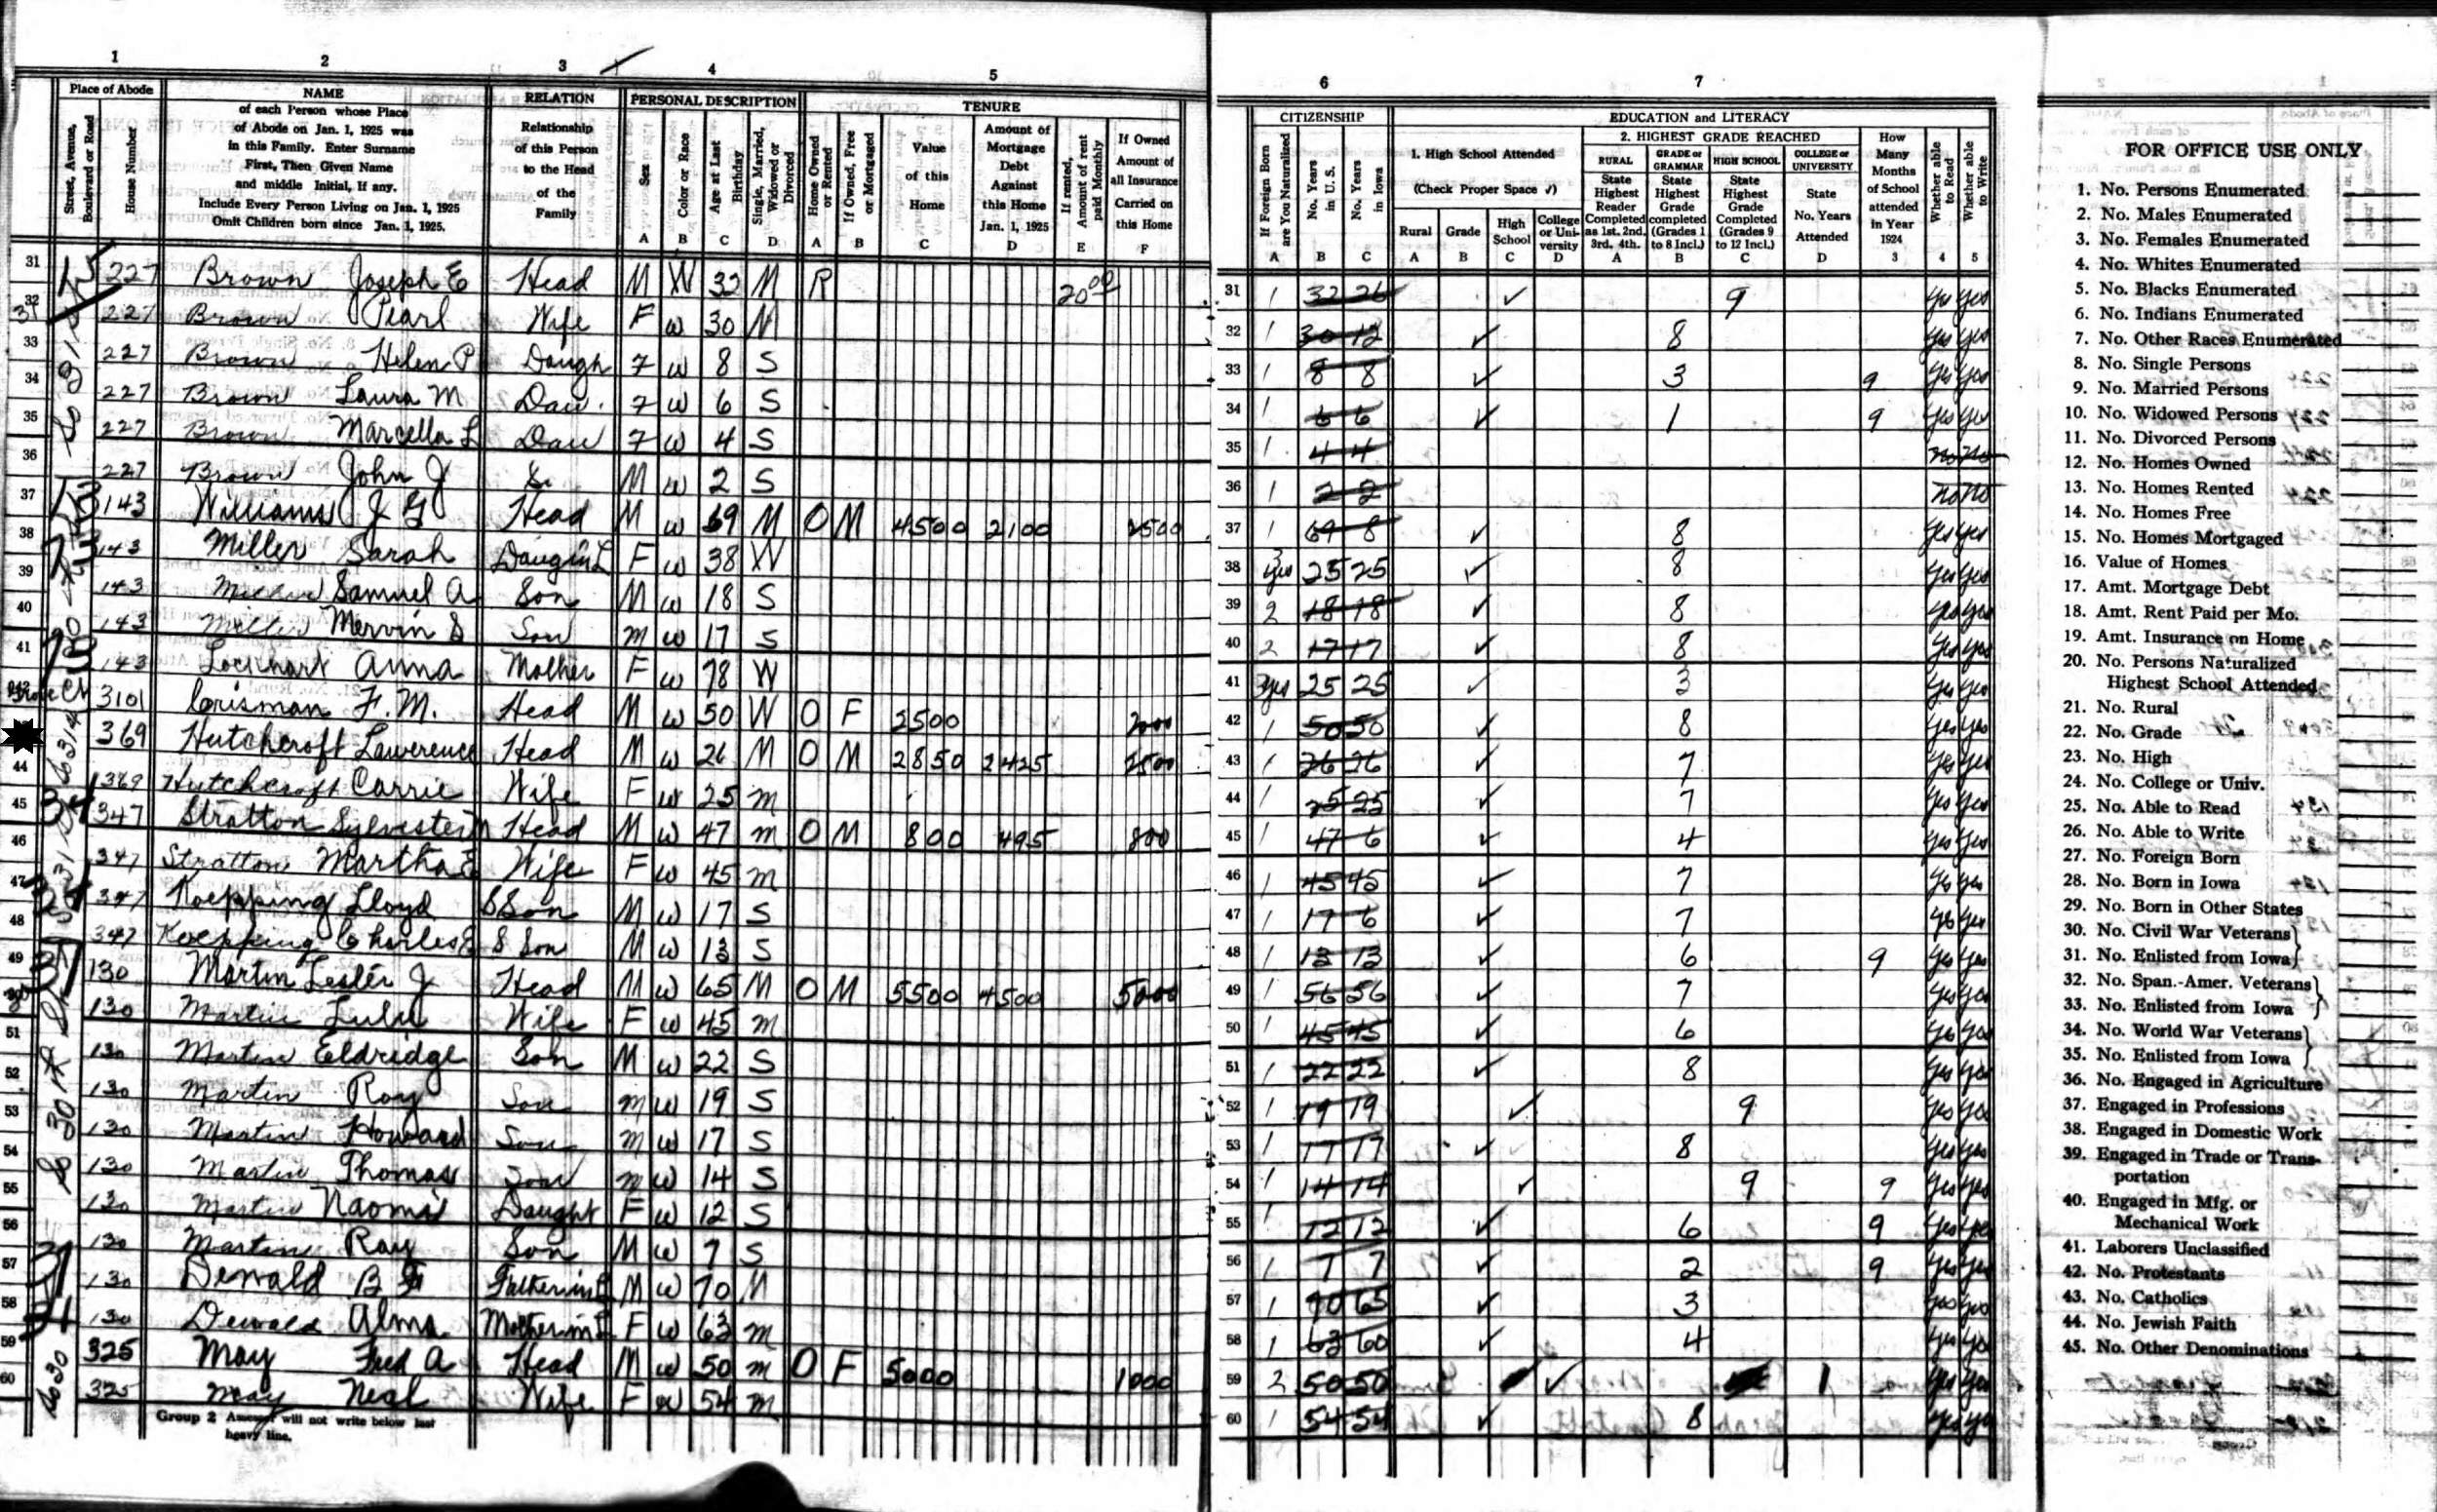 1 2 3 4 5
6 7
Place of Abode
Street, Avenue, Boulevard or Road
House Number
NAME
of each Person whose Place
of Abode on Jan. 1, 1925 was
in this Family. Enter Surname
First, Then Given Name
and middle Initial, If any.
Include Every Person Living on Jan. 1, 1925
Omit Children born since Jan. 1, 1925.
RELATION
Relationship
of this Person
to the Head
of the
Family
PERSONAL DESCRIPTION
Sex
Color or Race
Age at Last Birthday
Single, Married, Widowed or Divorced
A B C D
TENURE
Home Owned or Rented
If Owned, Free or Mortgaged
Value
of this
Home
Amount of
Mortgage
Debt
Against
this Home
Jan. 1, 1925
If rented, Amount of rent paid Monthly
If Owned
Amount of
all Insurance
Carried on
this Home
A B C D E F
CITIZENSHIP
If Foreign Born are You Naturalized
No. Years in U. S.
No. Years in Iowa
A B C
EDUCATION and LITERACY
1. High School Attended
(Check Proper Space ✓)
Rural Grade High School College or University
A B C D
2. HIGHEST GRADE REACHED
RURAL
State Highest Reader Completed as 1st. 2nd. 3rd. 4th.
GRADE or GRAMMAR
State Highest Grade completed (Grades 1 to 8 Incl.)
HIGH SCHOOL
State Highest Grade Completed (Grades 9 to 12 Incl.)
COLLEGE or UNIVERSITY
State No. Years Attended
A B C D
How Many Months of School attended in Year 1924
3
Whether able to Read
4
Whether able to Write
5
31 227 Brown Joseph E Head M W 32 M R 20 00
32 227 Brown Pearl Wife F w 30 M
33 227 Brown Helen P Daugh F w 8 S
34 227 Brown Laura M Dau. F w 6 S
35 227 Brown Marcella L Dau F w 4 S
36 227 Brown John J S. M w 2 S
37 143 Williams J G Head M w 69 M O M 4500 2100 2500
38 143 Miller Sarah Daug in L F w 38 W
39 143 Miller Samuel A Son M w 18 S
40 143 Miller Mervin S Son m w 17 S
41 143 Lockhart Anna Mother F w 78 W
3101 Crisman F. M. Head M w 50 W O F 2500 2000
369 Hutchcroft Lawerence Head M w 26 M O M 2850 2425 2500
44 369 Hutchcroft Carrie Wife F w 25 m
45 347 Stratton Sylvester Head M w 47 m O M 800 495 800
46 347 Stratton Martha E Wife F w 45 m
47 347 Koepping Lloyd S Son M w 17 S
48 347 Koepping Charles E S Son M w 13 S
49 130 Martin Lester J Head M w 65 M O M 5500 4500 5000
130 Martin Lulu Wife F w 45 m
51 130 Martin Eldridge Son M w 22 S
52 130 Martin Roy Son m w 19 S
53 130 Martin Howard Son m w 17 S
54 130 Martin Thomas Son m w 14 S
55 130 Martin Naomi Daught F w 12 S
56 130 Martin Ray Son M w 7 S
57 130 Dewald B F Father in L M w 70 M
58 130 Dewald Alma Mother in L F w 63 m
59 325 May Fred A Head M w 50 m O F 5000 1000
60 325 May Neal Wife F w 54 m
Group 2 Assessor will not write below last
heavy line.
31 1 32 26 ✓ 9 Yes Yes
32 1 30 12 ✓ 8 Yes Yes
33 1 8 8 ✓ 3 9 Yes Yes
34 1 6 6 ✓ 1 9 Yes Yes
35 1 4 4 No No
36 1 2 2 No No
37 1 69 8 ✓ 8 Yes Yes
38 3 yes 25 25 ✓ 8 Yes Yes
39 2 18 18 ✓ 8 Yes Yes
40 2 17 17 ✓ 8 Yes Yes
41 3 yes 25 25 ✓ 3 Yes Yes
42 1 50 50 ✓ 8 Yes Yes
43 1 26 26 ✓ 7 Yes Yes
44 1 25 25 ✓ 7 Yes Yes
45 1 47 6 ✓ 4 Yes Yes
46 1 45 45 ✓ 7 Yes Yes
47 1 17 6 ✓ 7 Yes Yes
48 1 13 13 ✓ 6 9 Yes Yes
49 1 56 56 ✓ 7 Yes Yes
50 1 45 45 ✓ 6 Yes Yes
51 1 22 22 ✓ 8 Yes Yes
52 1 19 19 ✓ 9 Yes Yes
53 1 17 17 ✓ 8 Yes Yes
54 1 14 14 ✓ 9 9 Yes Yes
55 1 12 12 ✓ 6 9 Yes Yes
56 1 7 7 ✓ 2 9 Yes Yes
57 1 70 65 ✓ 3 Yes Yes
58 1 63 60 ✓ 4 Yes Yes
59 2 50 50 ✓ 1 Yes Yes
60 1 54 54 ✓ 8 Yes Yes
FOR OFFICE USE ONLY
1. No. Persons Enumerated
2. No. Males Enumerated
3. No. Females Enumerated
4. No. Whites Enumerated
5. No. Blacks Enumerated
6. No. Indians Enumerated
7. No. Other Races Enumerated
8. No. Single Persons
9. No. Married Persons
10. No. Widowed Persons
11. No. Divorced Persons
12. No. Homes Owned
13. No. Homes Rented
14. No. Homes Free
15. No. Homes Mortgaged
16. Value of Homes
17. Amt. Mortgage Debt
18. Amt. Rent Paid per Mo.
19. Amt. Insurance on Home
20. No. Persons Naturalized
Highest School Attended
21. No. Rural
22. No. Grade
23. No. High
24. No. College or Univ.
25. No. Able to Read
26. No. Able to Write
27. No. Foreign Born
28. No. Born in Iowa
29. No. Born in Other States
30. No. Civil War Veterans
31. No. Enlisted from Iowa
32. No. Span.-Amer. Veterans
33. No. Enlisted from Iowa
34. No. World War Veterans
35. No. Enlisted from Iowa
36. No. Engaged in Agriculture
37. Engaged in Professions
38. Engaged in Domestic Work
39. Engaged in Trade or Trans-
portation
40. Engaged in Mfg. or
Mechanical Work
41. Laborers Unclassified
42. No. Protestants
43. No. Catholics
44. No. Jewish Faith
45. No. Other Denominations